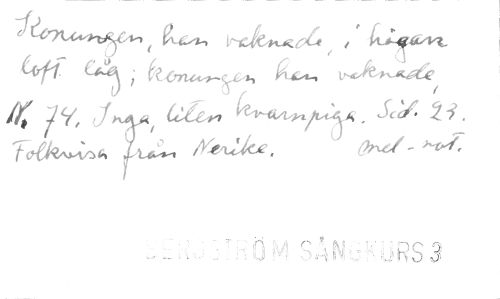 Konungen, han vaknade, i högan
loft låg; konungen han vaknade,
N. 74. Inga, liten kvarnpiga. Sid. 93.
Folkvisa från Nerike. mel-not.
BERGSTRÖM SÅNGKURS 3